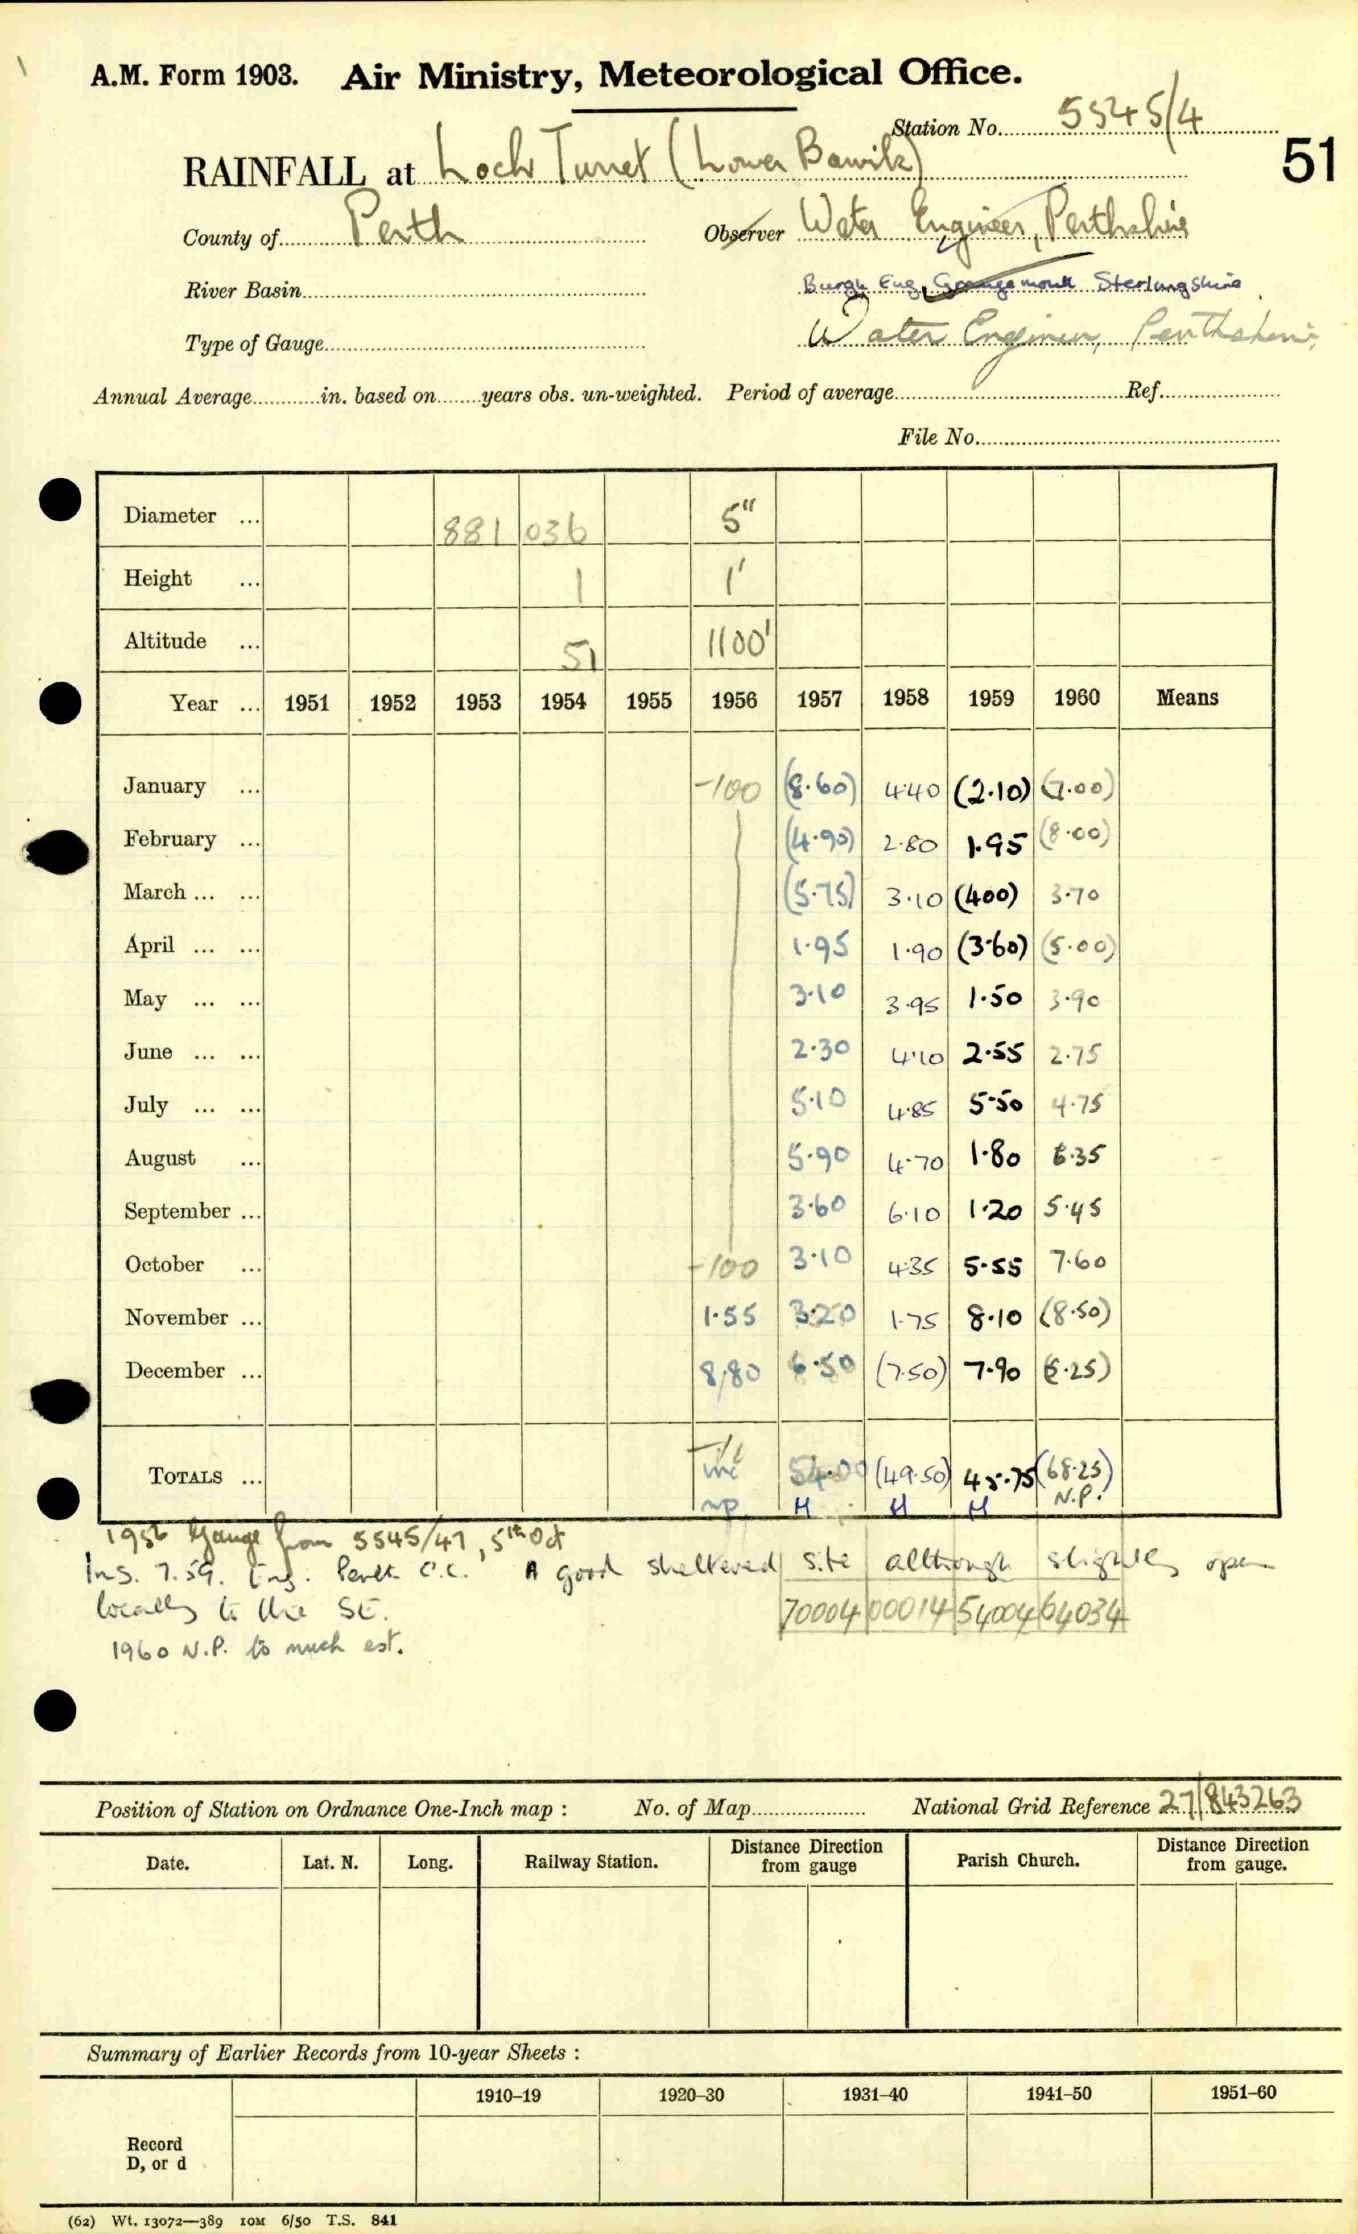 A.M. Form 1903. Air Ministry, Meteorological Office.
Station No. 5545/4
51
RAINFALL at Loch Turret (Lower Bawik)
County of Perth Observer Water Engineer, Perthshire
River Basin Burgh Eng Grangemouth Sterlingshire
Type of Gauge Water Engineer, Perthshire
Annual Average in. based on years obs. un-weighted. Period of average Ref.
File No.
Diameter ... 881 036 5"
Height ... 1 1'
Altitude ... 51 1100'
Year ... 1951 1952 1953 1954 1955 1956 1957 1958 1959 1960 Means
January ... -100 (8.60) 4.40 (2.10) (7.00)
February ... (4.90) 2.80 1.95 (8.00)
March ... ... (5.75) 3.10 (400) 3.70
April ... ... 1.95 1.90 (3.60) (5.00)
May ... ... 3.10 3.95 1.50 3.90
June ... ... 2.30 4.10 2.55 2.75
July ... ... 5.10 4.85 5.50 4.75
August ... 5.90 4.70 1.80 6.35
September ... 3.60 6.10 1.20 5.45
October ... -100 3.10 4.35 5.55 7.60
November ... 1.55 3.20 1.75 8.10 (8.50)
December ... 8.80 6.50 (7.50) 7.90 (5.25)
TOTALS ... inc 54.00 (49.50) 45.75 (68.25)
np H H H N.P.
1956 Gauge from 5545/47, 5th Oct
Ins. 7.59. Eng. Perth C.C. A good sheltered site although slightly open
locally to the SE.
70004 00014 54004 64034
1960 N.P. to much est.
Position of Station on Ordnance One-Inch map : No. of Map National Grid Reference 27/843263
Date. Lat. N. Long. Railway Station. Distance Direction from gauge Parish Church. Distance Direction from gauge.
Summary of Earlier Records from 10-year Sheets :
1910–19 1920–30 1931–40 1941–50 1951–60
Record
D, or d
(62) Wt. 13072—389 10M 6/50 T.S. 841